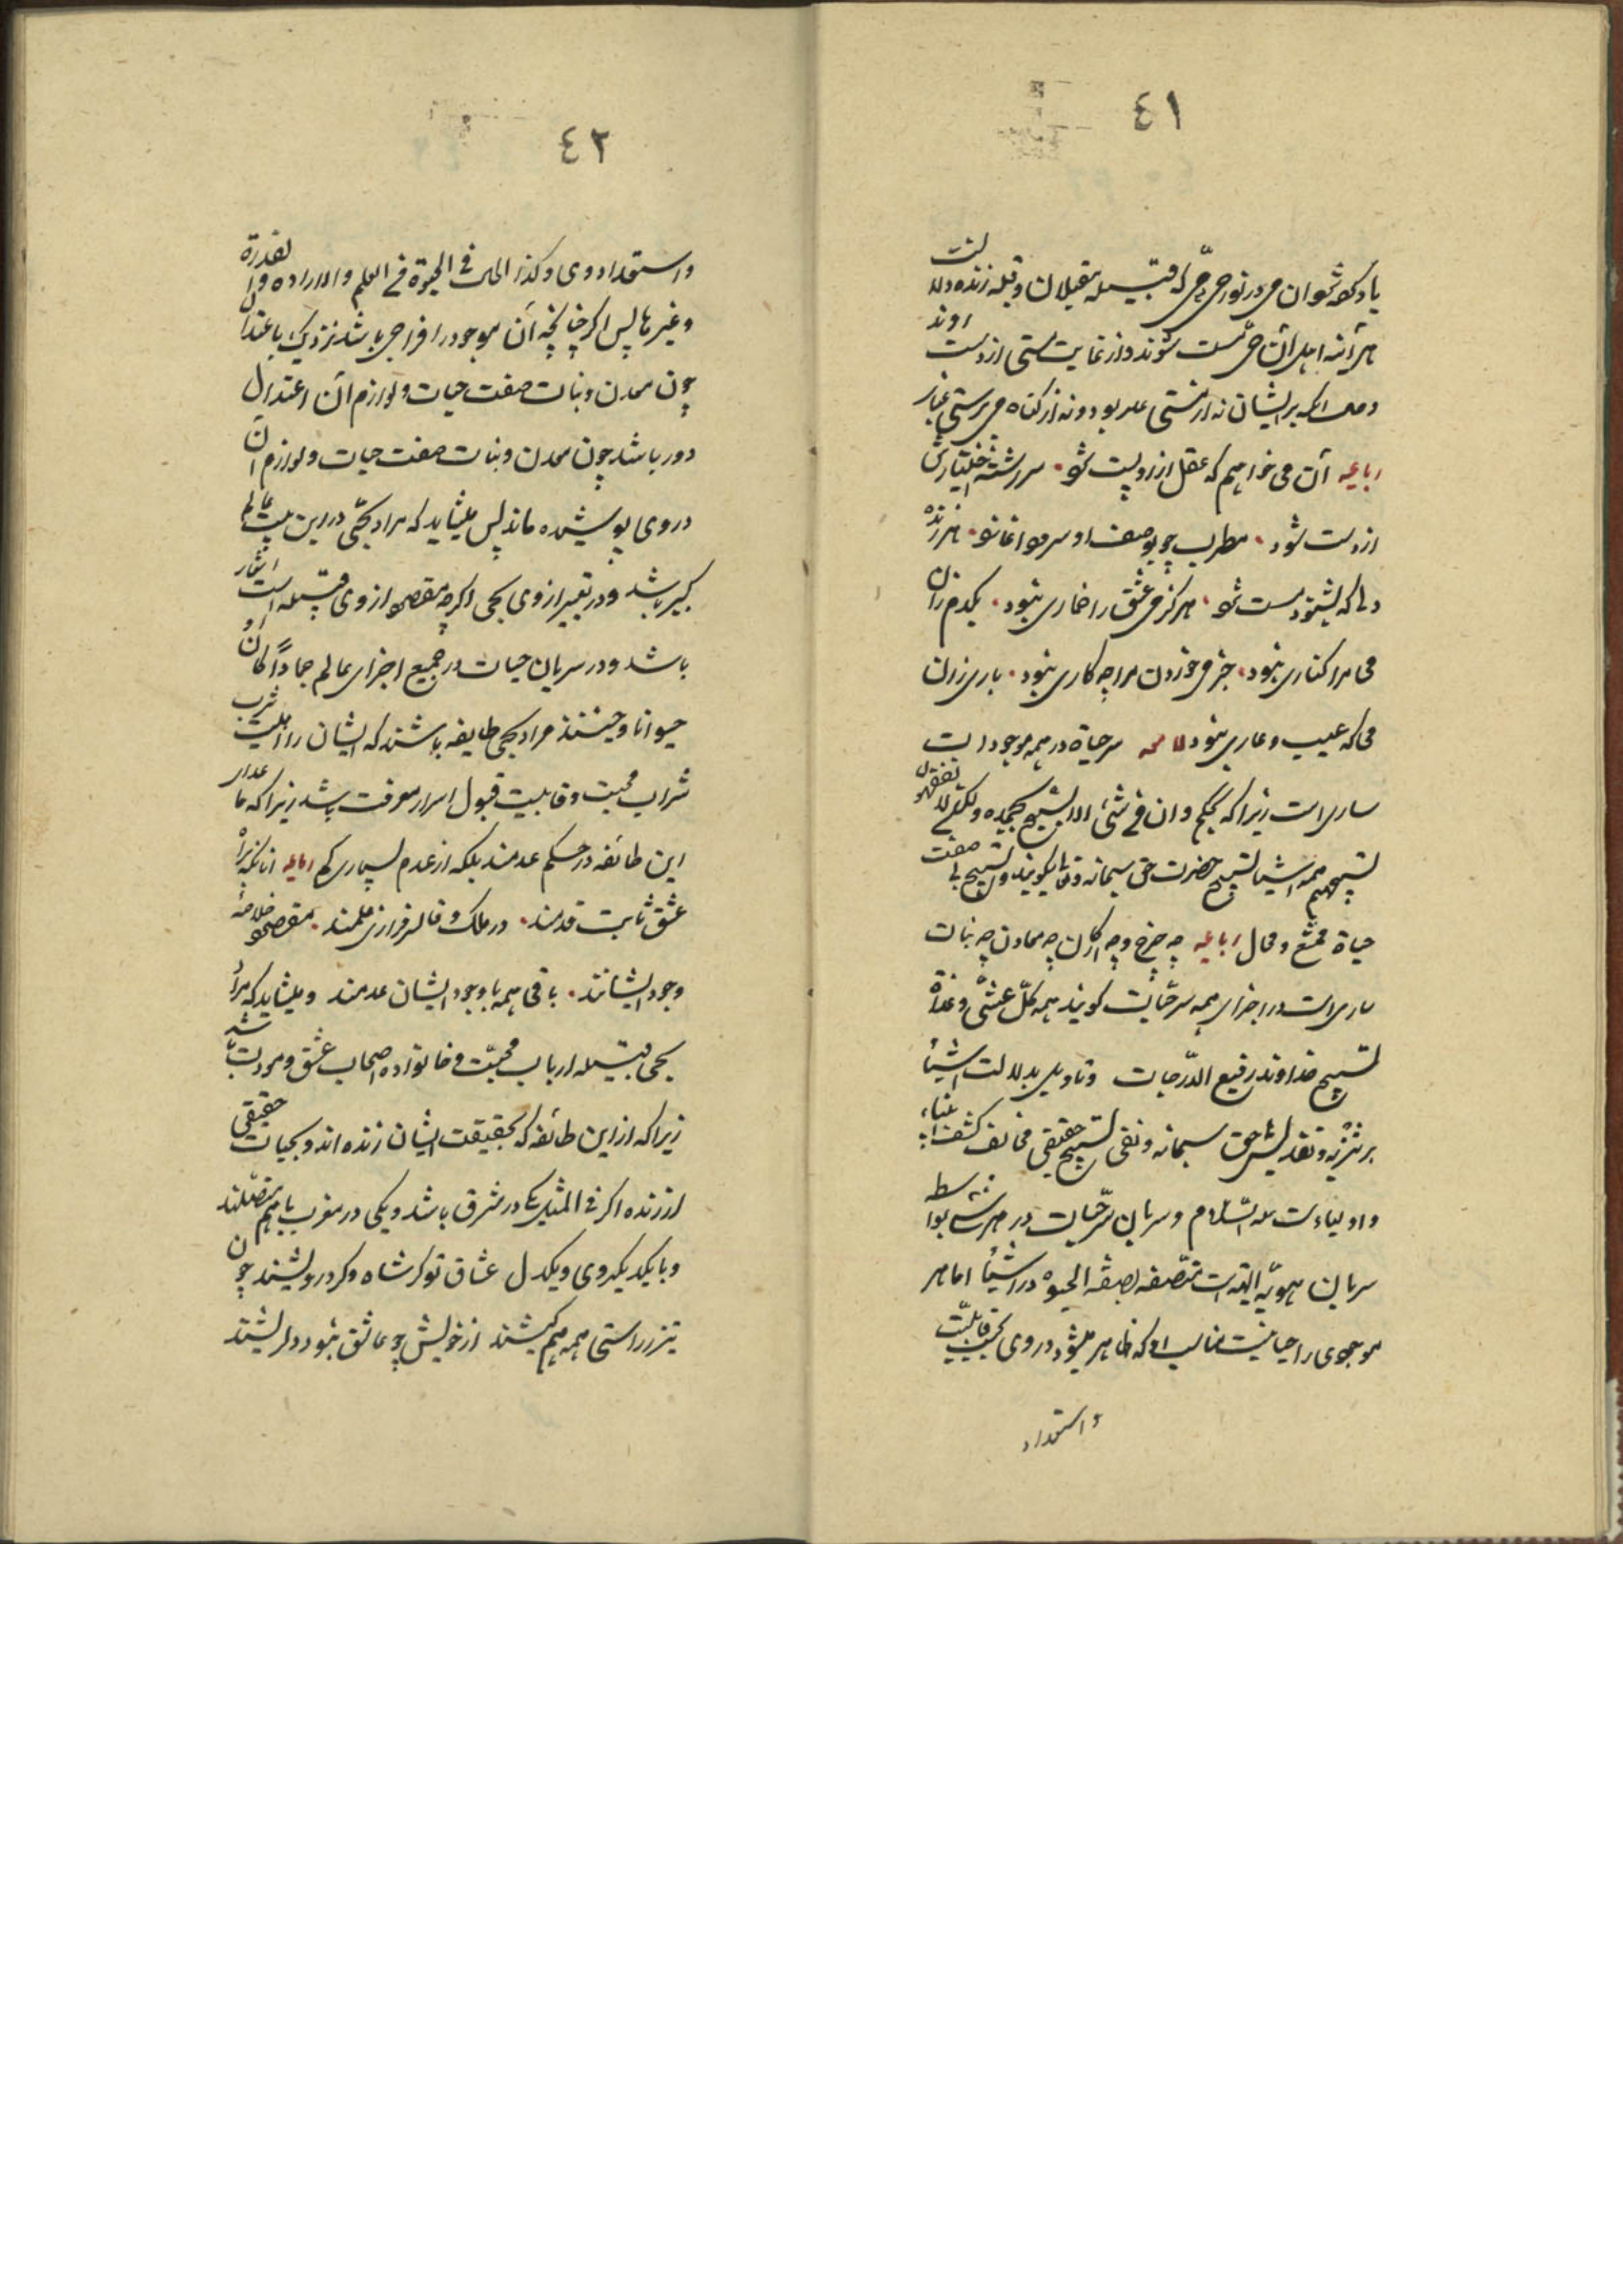 ٤١
یاد کرده شود آن می در نور حیّ که قبیله مقبلان و قبله زنده دلانست
هر آینه اهل آن حی مست شوند و از غایت مستی از دست روند
و حال آنکه بر ایشان نه از مستی عار بود و نه از گناه می پرستی غبار
رباعیه آن می خواهم که عقل ازو پست شود • سررشته اختیارش
از دست شود • مطرب چو بوصف او سرود آغازد • هر زنده
دلی که بشنود مست شود • هرگز می عشق را خماری نبود • یکدم زان
می مرا کناری نبود • جز می خوردن مرا چه کاری نبود • باری زان
می که عیب و عاری نبود لامعه سر حیاة در همه موجودات
ساریست زیرا که بحکم و ان من شئ الا یسبح بحمده ولکن لا تفقهون
تسبیحهم همه اشیا تسبیح حضرت حق سبحانه و تعالی میگویند و تسبیح بی صفت
حیاة ممتنع و محال رباعیه چه چرخ و چه ارکان چه معادن چه نبات
ساریست در اجزای همه سر حیات گویند همه کلّ عشیّ و غداة
تسبیح خداوند رفیع الدّرجات و تاویل بدلالت اشیا
بر تنزیه و تقدیس حق سبحانه و نفی تسبیح حقیقی مخالف کشف انبیاء
و اولیاءست علیه السّلام و سریان سرّ حیات در هر شئ بواسطه
سریان هویّة الهیه است متصفه بصفة الحیوة در اشیا اما هر
موجودی را حیاتیست مناسب او که ظاهر میشود در وی بحسب قابلیّت
و استعداد
٤٢
و استعداد وی و کذا الحال فی الحیوة فی العلم و الاراده و القدرة
و غیرها پس اگر چنانچه آن موجود را مزاجی باشد نزدیک باعتدال
چون معدن و نبات صفت حیات و لوازم آن اعتدال
دور باشد چون معدن و نبات صفت حیات و لوازم آن
در وی پوشیده ماند پس میشاید که مراد بحیّ در این بیت عالم
کبیر باشد و در تعبیر از وی بحی اگر چه مقصود از وی قبیله است اشعار
باشد و در سریان حیات در جمیع اجزای عالم جماداً کان او
حیوانا و حینئذ مراد بحی طایفه باشند که ایشان را اهلیت شرب
شراب محبت و قابلیت قبول اسرار معرفت باشد زیرا که ما عدای
این طائفه در حکم عدمند بلکه از عدم بسیاری کم رباعیه آنانکه براه
عشق ثابت قدمند • در ملک وفا سرفراز و علمند • مقصود خلاصه
وجود ایشانند • باقی همه با وجود ایشان عدمند و میشاید که مراد
بحی قبیله ارباب محبّت و خانواده اصحاب عشق و مودت باشد
زیرا که از این طائفه که بحقیقت ایشان زنده اند و بحیات حقیقی
ارزنده اگر فی المثل یکی در مشرق باشد و یکی در مغرب باهم متصلند
و با یکدیگر یکروی و یکدل عشاق تو گر شاه و گر درویشند چون
تیر ز راستی همه هم کیشند از خویش چو عاشق نبود دلریشند